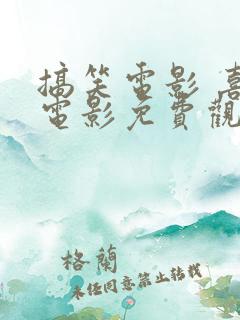 搞笑電影 喜
電影免費觀
格蘭
未经同意禁止转载